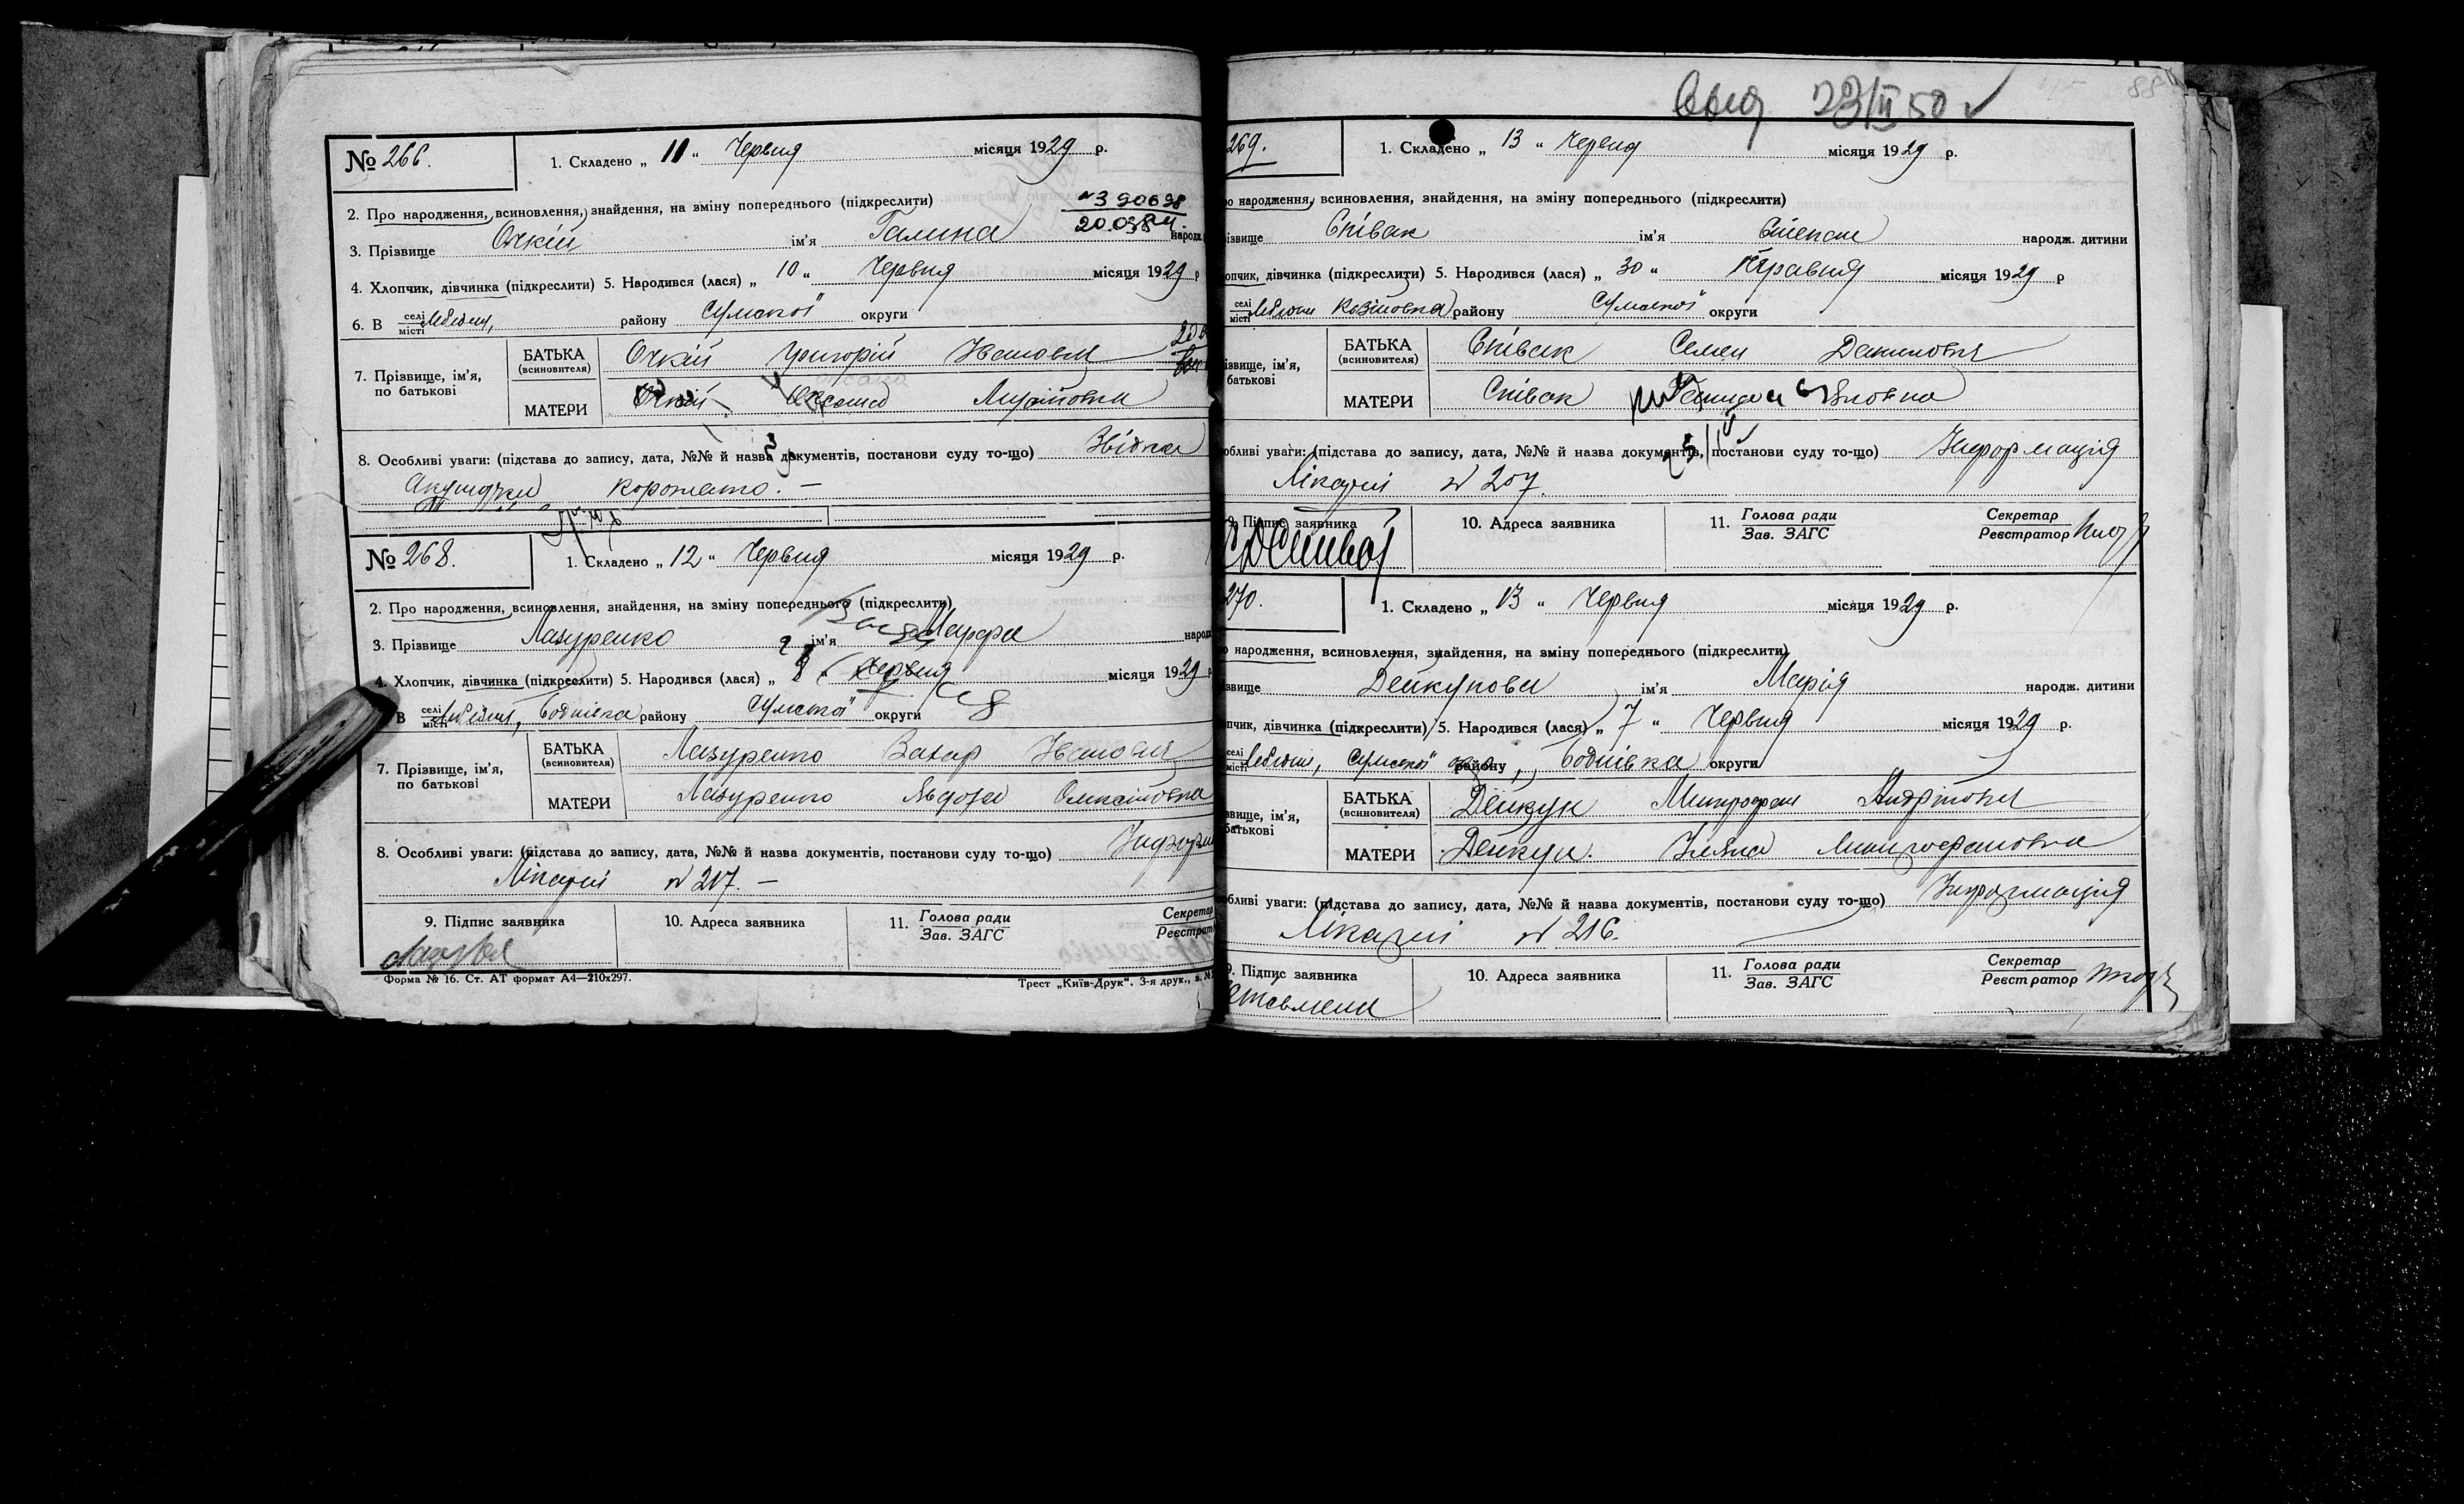 № 266.
1. Складено „ 11 “ Червця місяця 1929 р.
2. Про народження, всиновлення, знайдення, на зміну попереднього (підкреслити)
3. Прізвище Очкій ім'я Галина народж.
4. Хлопчик, дівчинка (підкреслити) 5. Народився (лася) „ 10 “ Червця місяця 1929 р
6. В селі місті Лебедин, району Сумської округи
7. Прізвище, ім'я, по батькові
БАТЬКА (всиновителя) Очкій Григорій Іванович
МАТЕРИ Очкій Оксана
8. Особливі уваги: (підстава до запису, дата, №№ й назва документів, постанови суду то-що) Звідка
Акушерки
№ 268.
1. Складено „ 12 “ Червця місяця 1929 р.
2. Про народження, всиновлення, знайдення, на зміну попереднього (підкреслити)
3. Прізвище Лазуренко ім'я Марфа народж
4. Хлопчик, дівчинка (підкреслити) 5. Народився (лася) „ 8 “ Червця місяця 1929 р
В селі місті Лебедин, району Сумської округи
7. Прізвище, ім'я, по батькові
БАТЬКА (всиновителя) Лазуренко Захар Іванович
МАТЕРИ Лазуренко Явдоха Олексіївна
8. Особливі уваги: (підстава до запису, дата, №№ й назва документів, постанови суду то-що)
Лікарні № 207. —
9. Підпис заявника
10. Адреса заявника
11. Голова ради Зав. ЗАГС
Секретар Реєстрат
Форма № 16. Ст. АТ формат А4—210х297.
Трест „Київ-Друк“. 3-я друк.,
88
23/II 50
269.
1. Складено „ 13 “ Червця місяця 1929 р.
о народження, всиновлення, знайдення, на зміну попереднього (підкреслити)
ізвище Співак ім'я Степан народж. дитини
опчик, дівчинка (підкреслити) 5. Народився (лася) „ 30 “ Травня місяця 1929 р
селі місті Лебедин району Сумської округи
ізвище, ім'я, батькові
БАТЬКА (всиновителя) Співак Семен Данилович
МАТЕРИ Співак
обливі уваги: (підстава до запису, дата, №№ й назва документів, постанови суду то-що) Інформація
Лікарні № 207.
9. Підпис заявника
10. Адреса заявника
11. Голова ради Зав. ЗАГС
Секретар Реєстратор
270.
1. Складено „ 13 “ Червця місяця 1929 р.
о народження, всиновлення, знайдення, на зміну попереднього (підкреслити)
звище Дейкунова ім'я Марія народж. дитини
пчик, дівчинка (підкреслити) 5. Народився (лася) „ 7 “ Червця місяця 1929 р.
селі місті Лебедин, Сумської району, округи
звище, ім'я, батькові
БАТЬКА (всиновителя) Дейкун Митрофан
МАТЕРИ Дейкун. Уляна Митрофановна
обливі уваги: (підстава до запису, дата, №№ й назва документів, постанови суду то-що) Інформація
Лікарні № 216.
9. Підпис заявника
10. Адреса заявника
11. Голова ради Зав. ЗАГС
Секретар Реєстратор